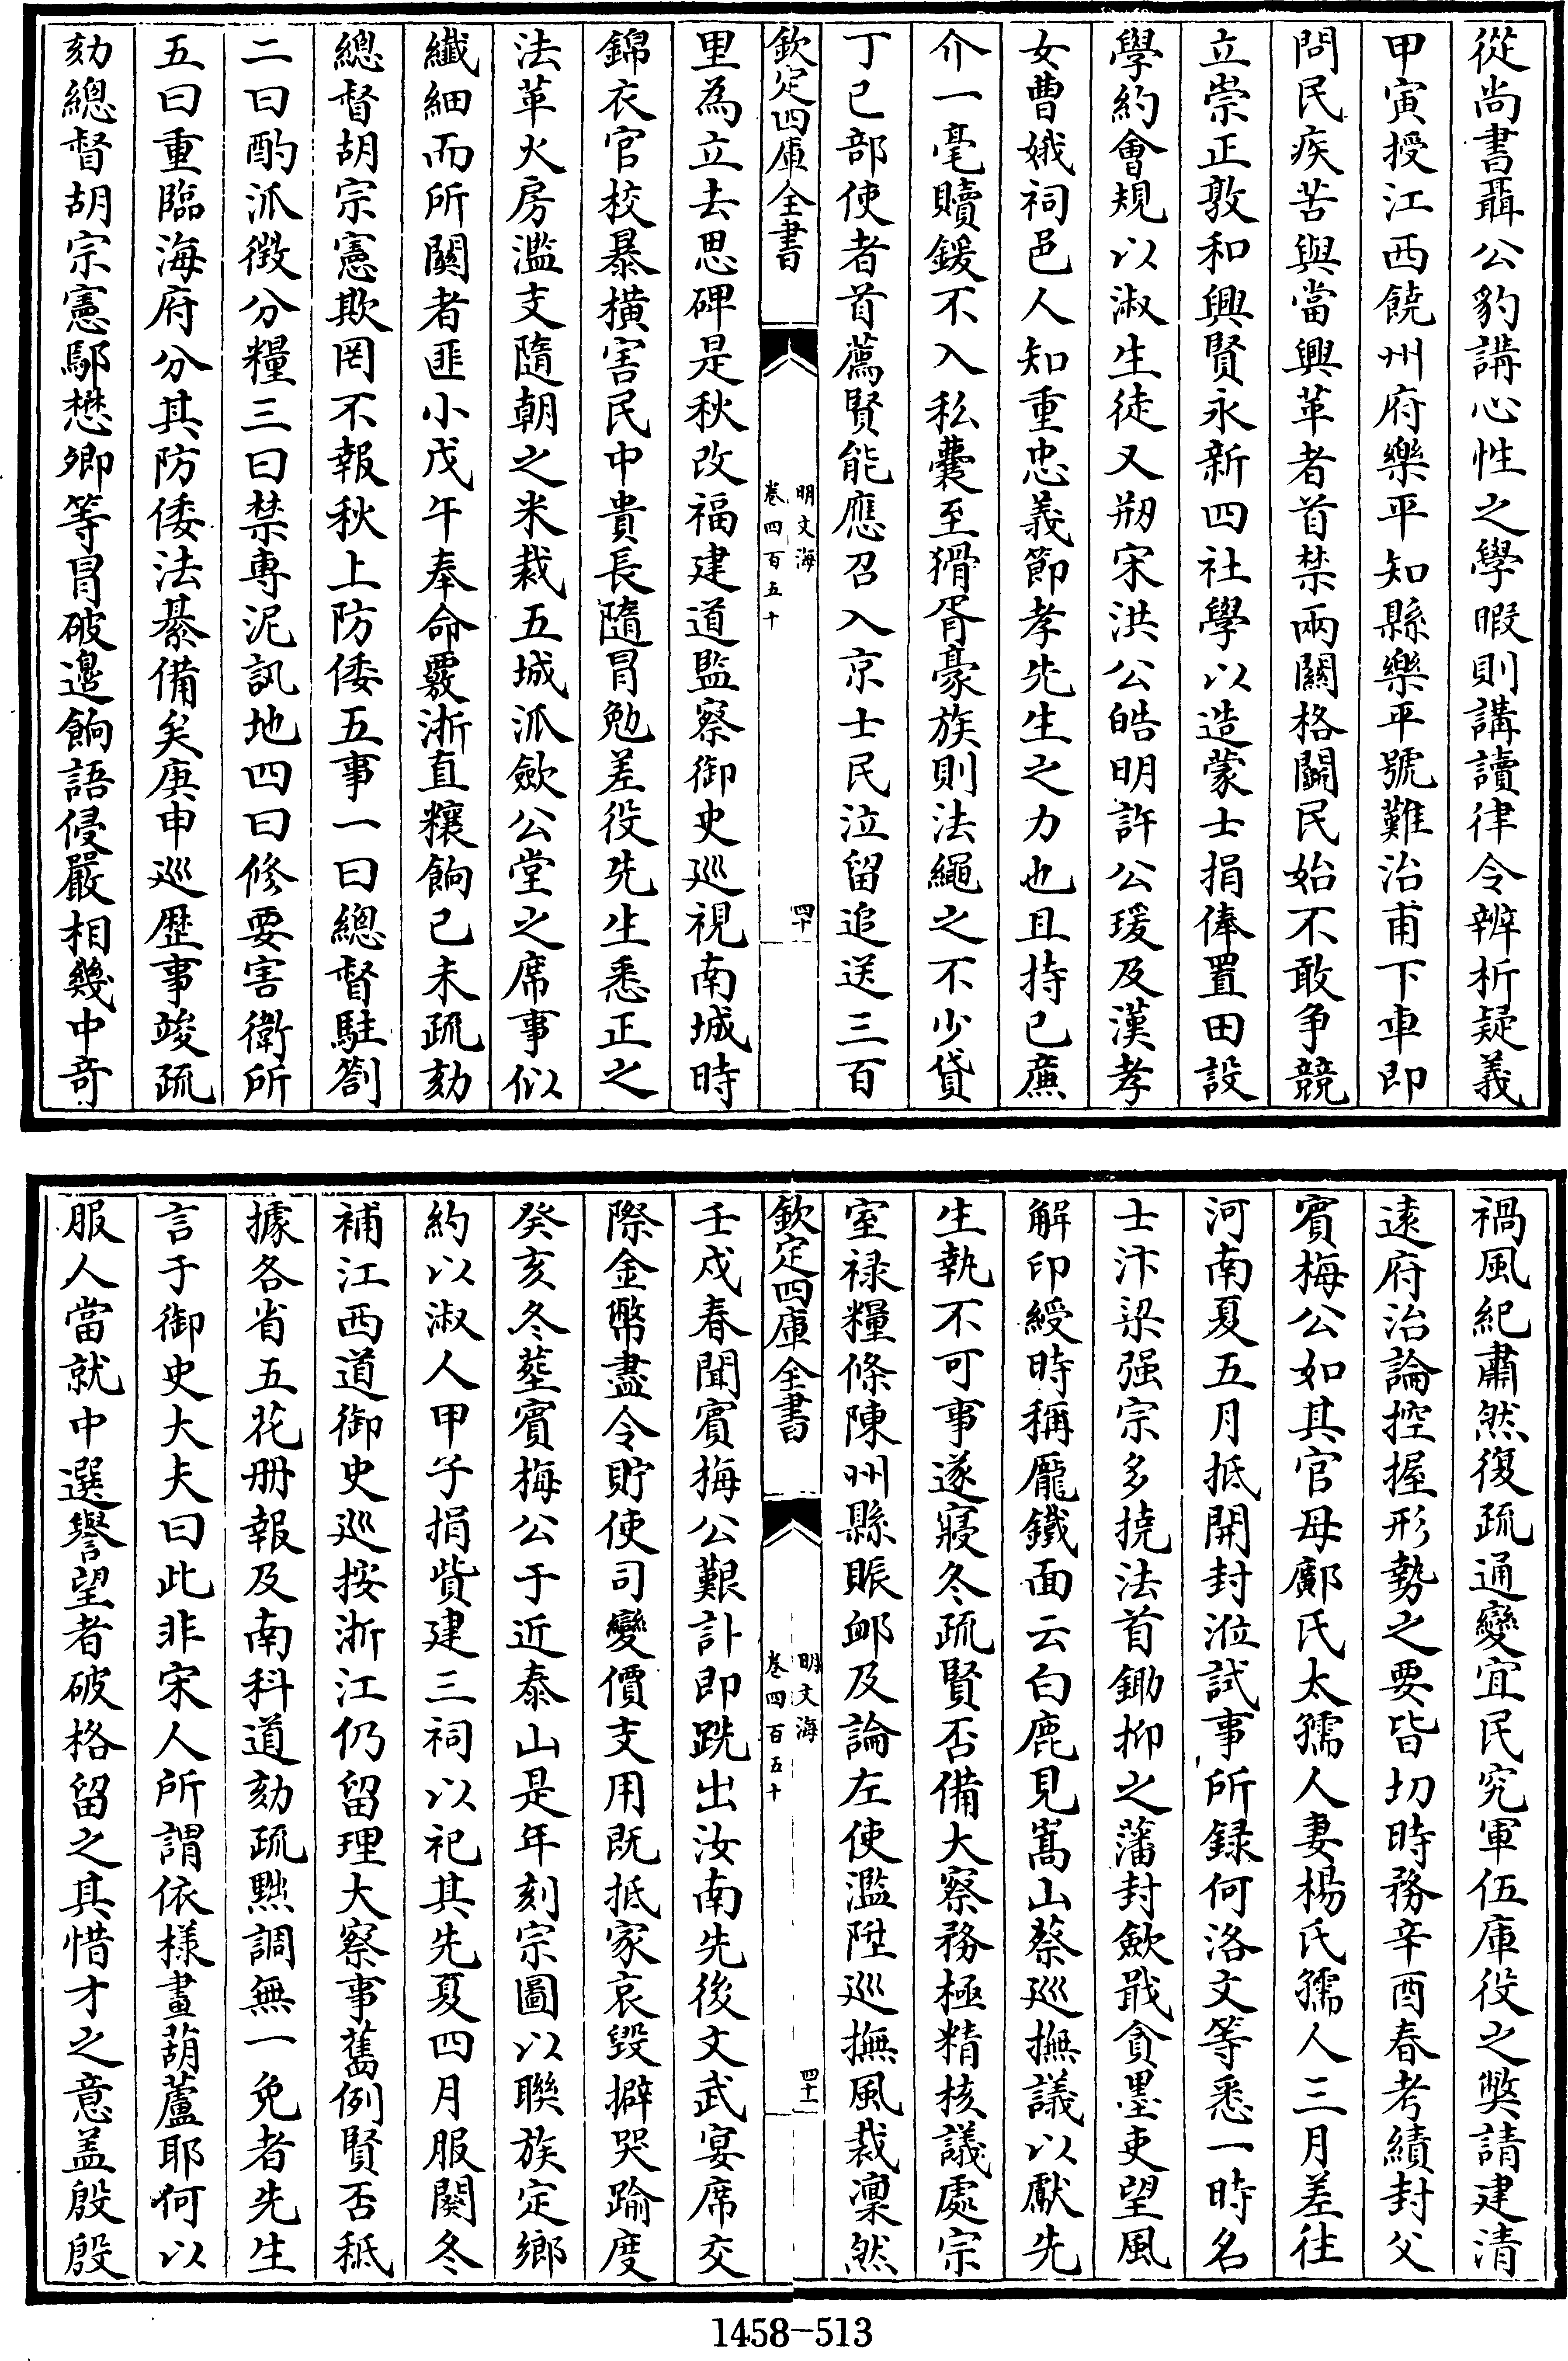 從尚書聶公豹講心性之學暇則講讀律令辨析疑義
甲寅授江西饒州府樂平知縣樂平號難治甫下車即
問民疾苦與當興革者首禁兩闗格鬭民始不敢争競
立崇正敦和興賢永新四社學以造蒙士捐俸置田設
學約會規以淑生徒又剏宋洪公皓明許公瑗及漢孝
女曹娥祠邑人知重忠義節孝先生之力也且持已㢘
介一毫贖鍰不入私囊至猾胥豪族則法繩之不少貸
丁已部使者首薦賢能應召入京士民泣留追送三百
欽定四庫全書
明文海
卷四百五十
四十
里為立去思碑是秋改福建道監察御史巡視南城時
錦衣官校暴橫害民中貴長隨冒勉差役先生悉正之
法革火房濫支隨朝之米裁五城派歛公堂之席事似
纎細而所闗者匪小戊午奉命覈浙直糧餉已未疏劾
總督胡宗憲欺罔不報秋上防倭五事一曰總督駐劄
二曰酌派徴分糧三曰禁專泥訊地四曰修要害衛所
五曰重臨海府分其防倭法綦備矣庚申巡歴事竣疏
劾總督胡宗憲鄢懋卿等冒破邉餉語侵嚴相幾中竒
禍風紀肅然復疏通變宜民究軍伍庫役之獘請建清
逺府治論控握形勢之要皆切時務辛酉春考績封父
賓梅公如其官母鄺氏太孺人妻楊氏孺人三月差往
河南夏五月抵開封涖試事所録何洛文等悉一時名
士汴梁强宗多撓法首鋤抑之藩封歛戢貪墨吏望風
解印綬時稱龎鐵面云白鹿見嵩山蔡巡撫議以獻先
生執不可事遂寢冬疏賢否備大察務極精核議處宗
室禄糧條陳州縣賑䘏及論左使濫陞巡撫風裁凜然
欽定四庫全書
明文海
卷四百五十
四十一
壬戍春聞賓梅公艱訃即跣出汝南先後文武宴席交
際金幣盡令貯使司變價支用既抵家哀毀擗哭踰度
癸亥冬塟賓梅公于近泰山是年刻宗圖以聯族定鄉
約以淑人甲子捐貲建三祠以祀其先夏四月服闋冬
補江西道御史巡按浙江仍留理大察事舊例賢否秪
據各省五花册報及南科道劾疏黜調無一免者先生
言于御史大夫曰此非宋人所謂依様畫葫蘆耶何以
服人當就中選譽望者破格留之其惜才之意盖殷殷
1458-513